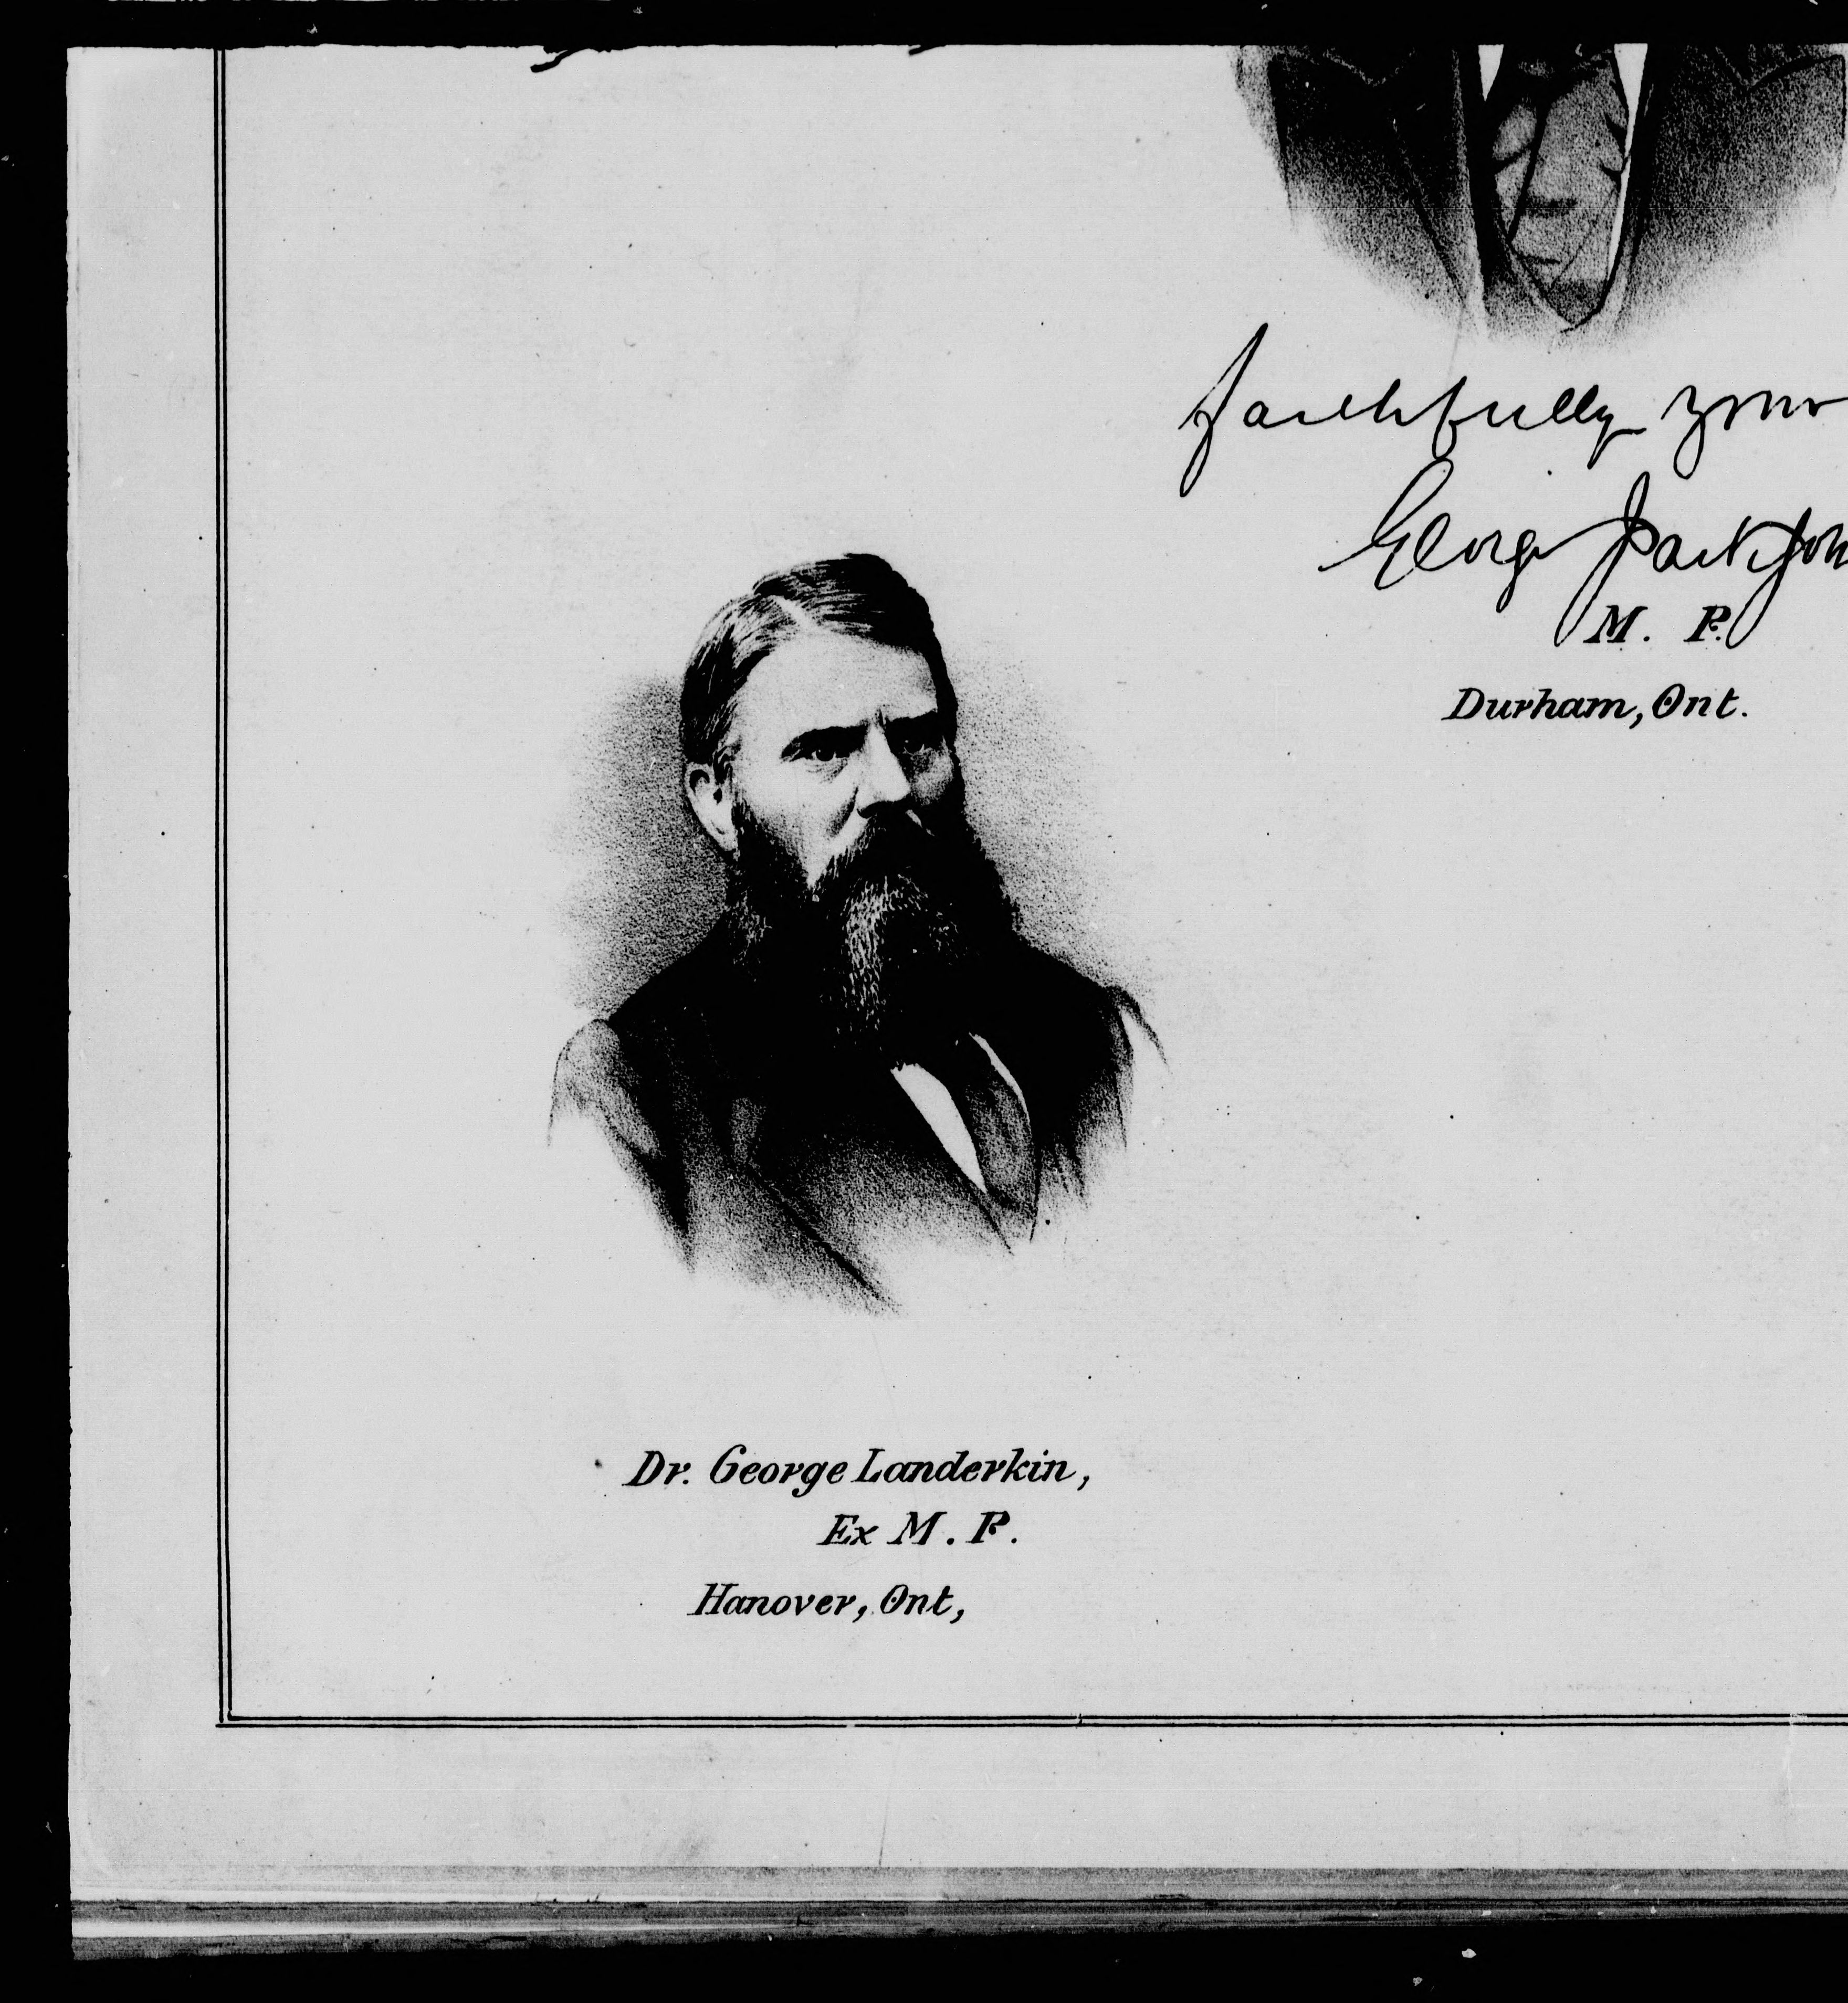 faithfully yours
George Jackson
M. P.
Durham, Ont.
Dr. George Landerkin,
Ex M. P.
Hanover, Ont,